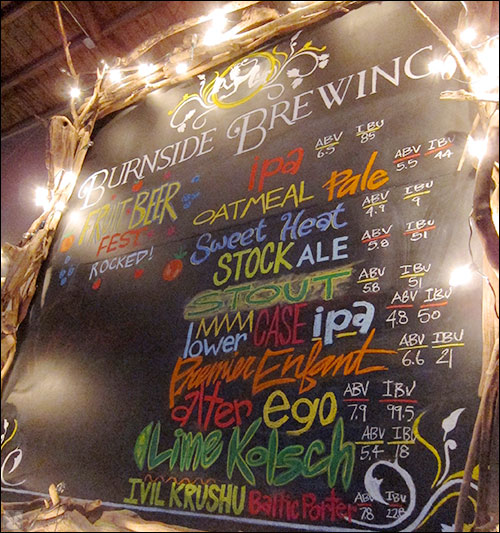 BURNSIDE BREWING
FRUIT BEER
FEST
ROCKED!
ipa ABV 6.5 IBU 85
OATMEAL Pale ABV 5.5 IBU 44
Sweet Heat ABV 4.9 IBU 9
STOCK ALE ABV 5.8 IBU 51
STOUT ABV 5.8 IBU 51
lower CASE ipa ABV 4.8 IBU 50
Premier Enfant ABV 6.6 IBU 21
alter ego ABV 7.9 IBU 99.5
Lime Kolsch ABV 5.4 IBU 18
IVIL KRUSHU Baltic Porter ABV 7.8 IBU